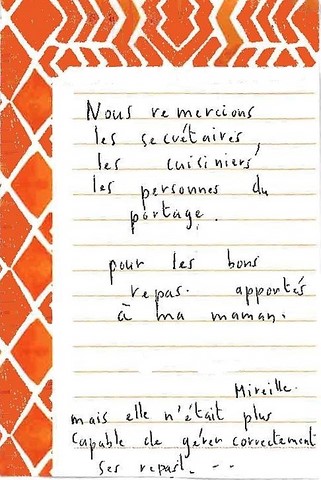 Nous remercions
les secrétaires,
les cuisiniers,
les personnes du
portage.
pour les bons
repas. apportés
à ma maman.
Mireille.
mais elle n'était plus
capable de gérer correctement
ses repast. - -